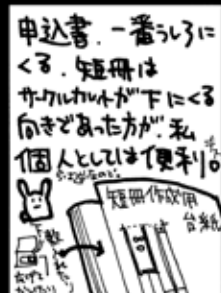 申込書.一番うしろに
くる.短冊は
サークルカットが下にくる
向きであった方が.私
個人としては便利。
短冊作成用
台紙